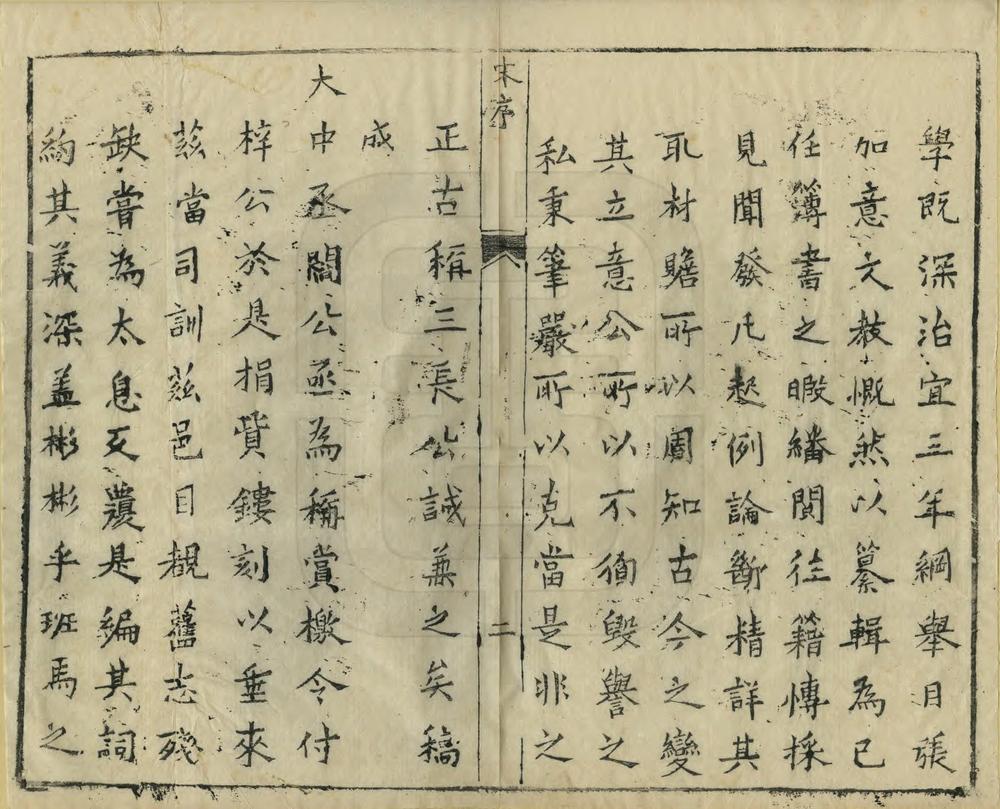 學既深治宜三年綱舉目張
加意文教慨然以纂輯為己
任簿書之暇繙閱往籍愽採
見聞發凡起例論斷精詳其
取材贍所以周知古今之變
其立意公所以不徇毀譽之
私秉筆嚴所以克當是非之
宋序
二
正古稱三長公誠兼之矣稿
成
大中丞閻公亟為稱賞檄令付
梓公於是捐貲鏤刻以垂來
兹當司訓兹邑目覩舊志殘
缺嘗為太息及覆是編其詞
約其義深盖彬彬乎班馬之